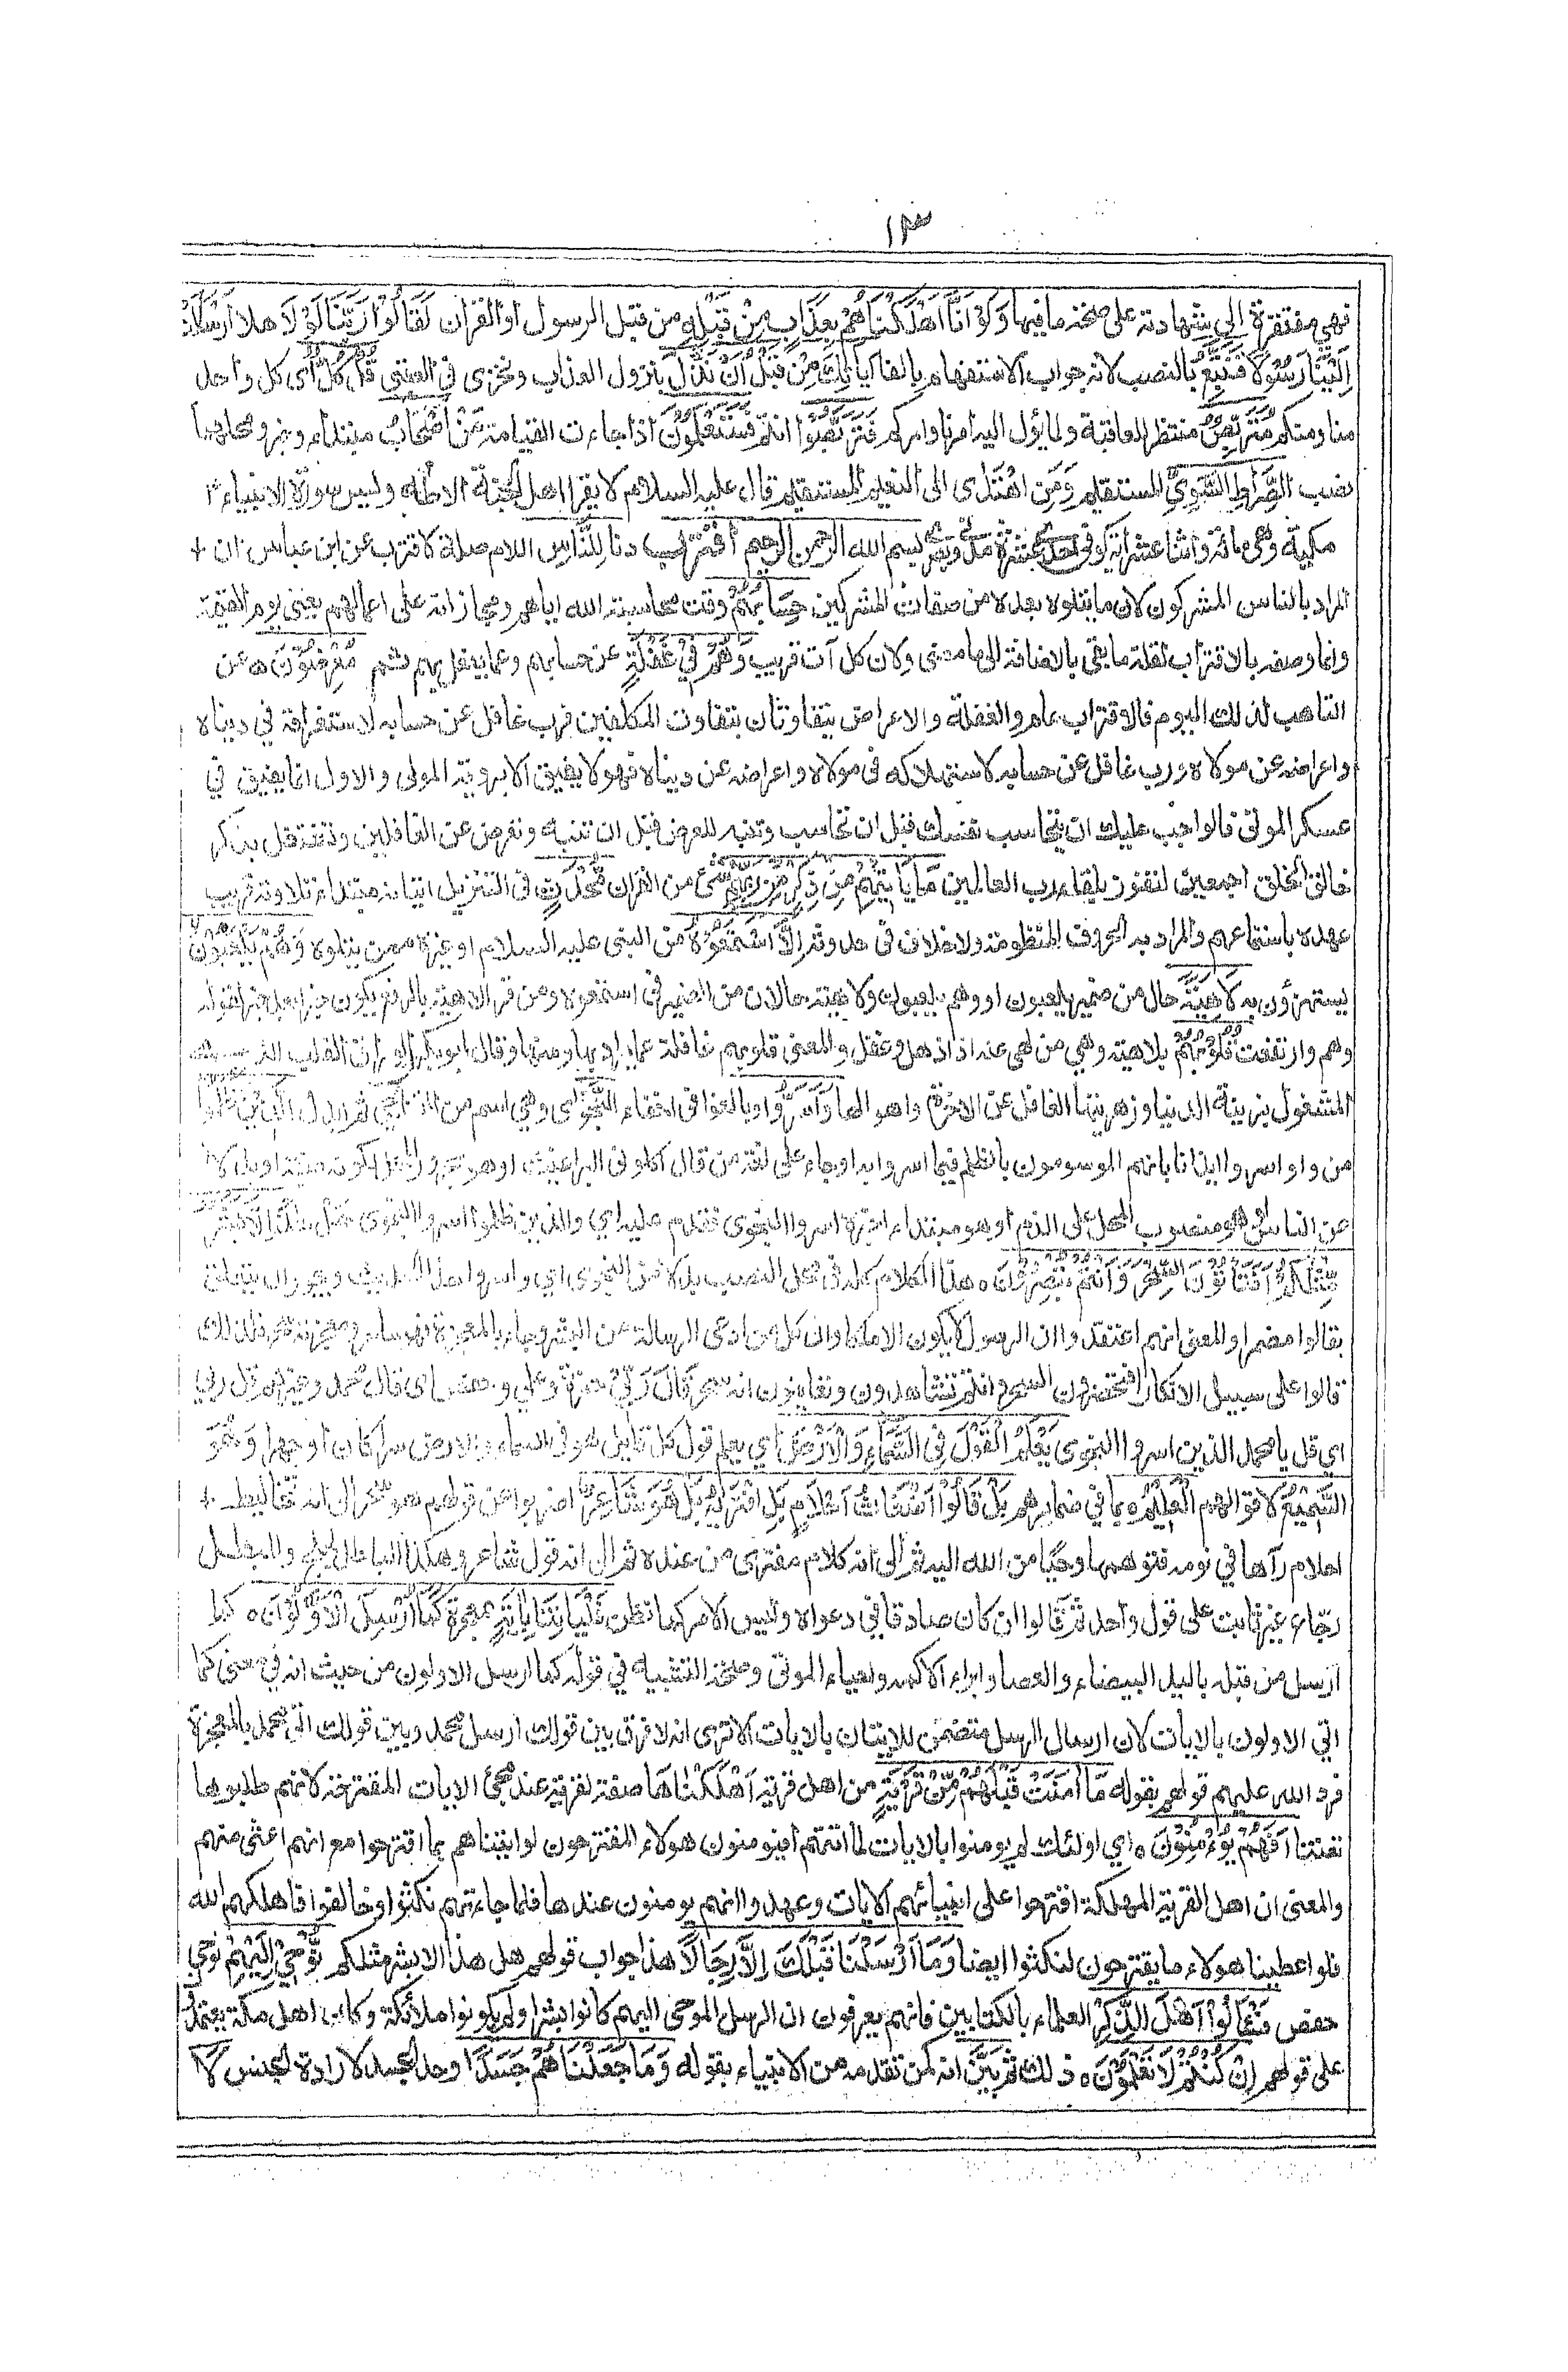 ١٣
فهي مفتقرة الى شهادته على صحة ما فيها وَلَوْ اَنَّا اَهْلَكْنَاهُمْ بِعَذَابٍ مِنْ قَبْلِهٖ من قبل الرسول او القران لَقَالُوْا رَبَّنَا لَوْ لَا هلا اَرْسَلْتَ
اِلَيْنَا رَسُوْلًا فَنَتَّبِعَ بالنصب لانه جواب الاستفهام بالفا اٰيَاتِكَ مِنْ قَبْلِ اَنْ نَذِلَّ بنزول العذاب ونخزى فى العقبى قُلْ كُلٌّ اى كل واحد
منا ومنكم مُتَرَبِّصٌ منتظر للعاقبة ولما يؤل اليه امرنا وامركم فَتَرَبَّصُوْا انتم فَسَتَعْلَمُوْنَ اذا جاءت القيامة مَنْ اَصْحَابُ مبتداء وخبر ومحلهما
نصب الصِّرَاطِ السَّوِيِّ المستقيم وَمَنِ اهْتَدٰى الى النعيم المستقيم قال عليه السلام لا يقرا اهل الجنة الا طه ويس سورة الانبياء
مكية وهي مائة واثنا عشر اية كوفى احد عشرة مدنى وبصرى بسم الله الرحمن الرحيم اِقْتَرَبَ دنا لِلنَّاسِ اللام صلة لاقترب عن ابن عباس ان
المراد بالناس المشركون لان ما يتلوه بعده من صفات المشركين حِسَابُهُمْ وقت محاسبة الله اياهم ومجازاته على اعمالهم يعنى يوم القيمة
وانما وصفه بالاقتراب لقلة ما بقى بالاضافة الى ما مضى ولان كل آت قريب وَهُمْ فِيْ غَفْلَةٍ عن حسابهم وعما يفعل بهم ثم مُعْرِضُوْنَ ه عن
التاهب لذلك اليوم فالاقتراب عام والغفلة والاعراض يتفاوتان بتفاوت المكلفين فرب غافل عن حسابه لاستغراقه في دنياه
واعراضه عن مولاه ورب غافل عن حسابه لاستهلاكه فى مولاه واعراضه عن دنياه فهو لا يفيق الا برؤية المولى والاول انما يفيق في
عسكر الموتى فالواجب عليك ان تحاسب نفسك قبل ان تحاسب وتنبه للعرض قبل ان تنبه وتعرض عن الغافلين وتشتغل بذكر
خالق الخلق اجمعين لتفوز بلقاء رب العالمين مَا يَاْتِيْهِمْ مِنْ ذِكْرٍ مِّنْ رَبِّهِمْ شئ من القران مُحْدَثٍ فى التنزيل اتيانه مبتداءة تلاوته قريب
عهده باستماعهم والمراد به الحروف المنظومة ولا خلاف فى حدوثه اِلَّا اسْتَمَعُوْهُ من النبى عليه السلام او غيره ممن يتلوه وَهُمْ يَلْعَبُوْنَ
يستهزؤن به لَاهِيَةً حال من ضمير يلعبون او وهم يلعبون ولاهية حالان من الضمير فى استمعوه ومن قرا لاهية بالرفع يكون خبرا بعد خبر لقوله
وهم وارتفعت قُلُوْبُهُمْ بلاهية وهي من لهى عنه اذا ذهل وغفل والمعنى قلوبهم غافلة عما يراد بها ومنها وقال ابو بكر الوراق القلب اللاهى
المشغول بزينة الدنيا وزهرتها الغافل عن الاخرة واهوالها وَاَسَرُّوْا وبالغوا فى اخفاء النَّجْوَى وهي اسم من التناجي ثم ابدل الَّذِيْنَ ظَلَمُوْا
من واو اسروا ايذانا بانهم الموسومون بالظلم فيما اسروا به او جاء على لغة من قال اكلوني البراغيث او هو مجرور المحل لكونه صفة او بدلا
من الناس او هو منصوب المحل على الذم او هو مبتداء خبره اسروا النجوى فقدم عليه اي والذين ظلموا اسروا النجوى هَلْ هٰذَا اِلَّا بَشَرٌ
مِّثْلُكُمْ اَفَتَاْتُوْنَ السِّحْرَ وَاَنْتُمْ تُبْصِرُوْنَ ه هذا الكلام كله فى محل النصب بدل من النجوى اي واسروا هذا الحديث ويجوز ان يتعلق
بقالوا مضمرا والمعنى انهم اعتقدوا ان الرسول لا يكون الا ملكا وان كل من ادعى الرسالة من البشر وجاء بالمعجزة فهو ساحر ومعجزته سحر فلذلك
قالوا على سبيل الانكار افتحضرون السحر وانتم تشاهدون وتعاينون انه سحر قَالَ رَبِّيْ حمزة وعلي وحفص اى قال محمد وغيرهم قل ربي
اي قل يا محمد للذين اسروا النجوى يَعْلَمُ الْقَوْلَ فِى السَّمَاءِ وَالْاَرْضِ اي يعلم قول كل قايل هو فى السماء والارض سرا كان او جهرا وَهُوَ
السَّمِيْعُ لاقوالهم الْعَلِيْمُ ه بما في ضمايرهم بَلْ قَالُوْا اَضْغَاثُ اَحْلَامٍ بَلِ افْتَرٰيهُ بَلْ هُوَ شَاعِرٌ اضربوا عن قولهم هو سحر الى انه تخاليط
احلام رآها في نومه فتوهمها وحيا من الله اليه ثم الى انه كلام مفترى من عنده ثم الى انه قول شاعر وهكذا الباطل لجلج والمبطل
رجّاع غير ثابت على قول واحد ثم قالوا ان كان صادقا في دعواه وليس الامر كما نظن فَلْيَاْتِنَا بِاٰيَةٍ بمعجزة كَمَا اُرْسِلَ الْاَوَّلُوْنَ ه كما
ارسل من قبله باليد البيضاء والعصا وابراء الاكمه واحياء الموتى وصحة التشبيه في قوله كما ارسل الاولون من حيث انه في معنى كما
اتي الاولون بالايات لان ارسال الرسل متضمن للاتيان بالايات الا ترى انه لا فرق بين قولك ارسل محمد وبين قولك اتى محمد بالمعجزة
فرد الله عليهم قولهم بقوله مَا اٰمَنَتْ قَبْلَهُمْ مِّنْ قَرْيَةٍ من اهل قرية اَهْلَكْنَاهَا صفة لقرية عند مجئ الايات المقترحة لانهم طلبوها
تعنتا اَفَهُمْ يُؤْمِنُوْنَ ه اي اولئك لم يومنوا بالايات لما اتتهم افيومنون هولاء المقترحون لو اتيناهم بما اقترحوا مع انهم اعتى منهم
والمعنى ان اهل القرية المهلكة اقترحوا على انبيائهم الايات وعهدوا انهم يومنون عندها فلما جاءتهم نكثوا وخالفوا فاهلكهم الله
فلو اعطينا هولاء ما يقترحون لنكثوا ايضا وَمَا اَرْسَلْنَا قَبْلَكَ اِلَّا رِجَالًا هذا جواب قولهم هل هذا الا بشر مثلكم نُوْحِيْ اِلَيْهِمْ نوحي
حفص فَسْئَلُوْا اَهْلَ الذِّكْرِ العلماء بالكتابين فانهم يعرفون ان الرسل الموحى اليهم كانوا بشرا ولم يكونوا ملائكة وكان اهل مكة يعتمدون
على قولهم اِنْ كُنْتُمْ لَا تَعْلَمُوْنَ ه ذلك ثم بَيَّنَ انه كمن تقدمه من الانبياء بقوله وَمَا جَعَلْنَاهُمْ جَسَدًا وحد الجسد لارادة الجنس لَا